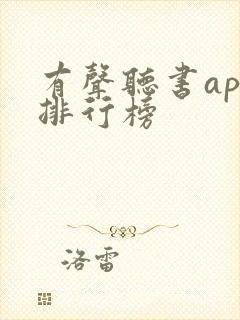 有聲聽書ap
排行榜
洛雷